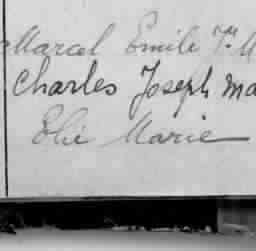 Marcel Emile Jh M
Charles Joseph Ma
Elie Marie